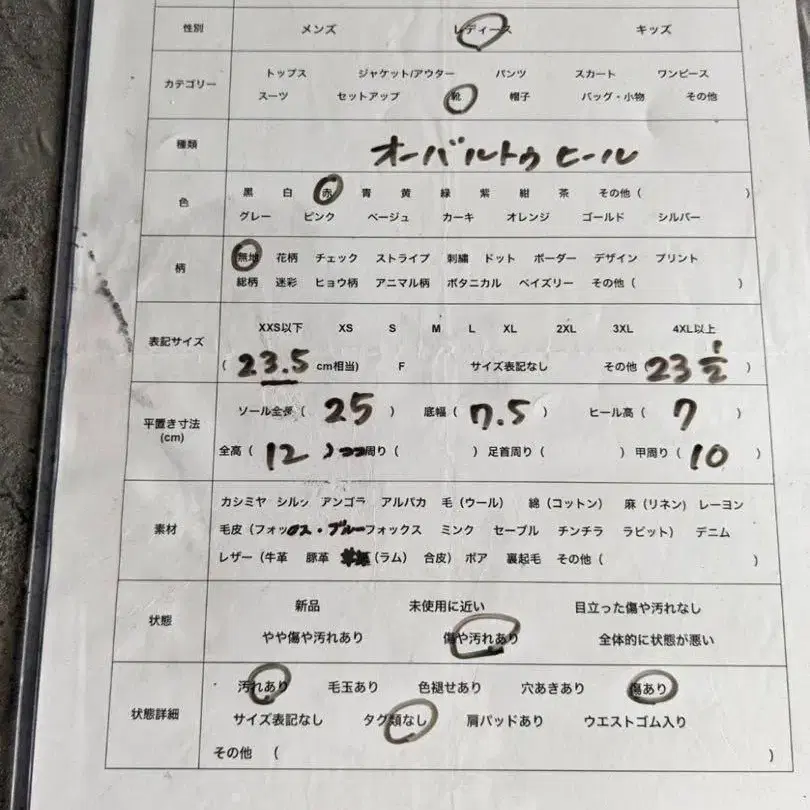 性別 メンズ レディース キッズ
カテゴリー
トップス ジャケット/アウター パンツ スカート ワンピース
スーツ セットアップ 靴 帽子 バッグ・小物 その他
種類 オーバルトゥ ヒール
色
黒 白 赤 青 黄 緑 紫 紺 茶 その他 ( )
グレー ピンク ベージュ カーキ オレンジ ゴールド シルバー
柄
無地 花柄 チェック ストライプ 刺繍 ドット ボーダー デザイン プリント
総柄 迷彩 ヒョウ柄 アニマル柄 ボタニカル ペイズリー その他 ( )
表記サイズ
XXS以下 XS S M L XL 2XL 3XL 4XL以上
( 23.5 cm相当) F サイズ表記なし その他 23 1/2 )
平置き寸法
(cm)
ソール全長 ( 25 ) 底幅 ( 7.5 ) ヒール高 ( 7 )
全高 ( 12 ) 周り ( ) 足首周り ( ) 甲周り ( 10 )
素材
カシミヤ シルク アンゴラ アルパカ 毛 (ウール) 綿 (コットン) 麻 (リネン) レーヨン
毛皮 (フォックス・ブルーフォックス ミンク セーブル チンチラ ラビット) デニム
レザー (牛革 豚革 (ラム) 合皮) ボア 裏起毛 その他 ( )
状態
新品 未使用に近い 目立った傷や汚れなし
やや傷や汚れあり 傷や汚れあり 全体的に状態が悪い
状態詳細
汚れあり 毛玉あり 色褪せあり 穴あきあり 傷あり
サイズ表記なし タグ類なし 肩パッドあり ウエストゴム入り
その他 ( )